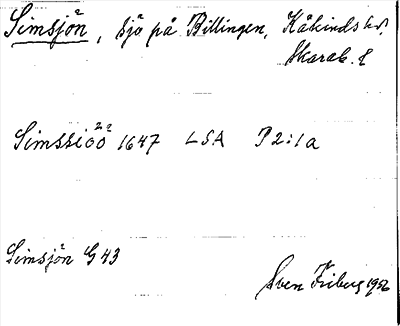 Simsjön, sjö på Billingen, Kåkinds hd.
Skarab. l
Simssiöö 1647 LSA P2:1a
Simsjön G43
Sven Friberg 1956